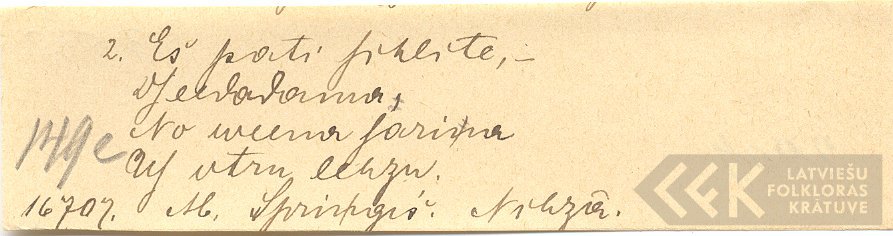 2. Eś pati sihlite,–
Dseedadama,
No weena sariņa
Us otru lehzu.
149e
16707. M. Spriņģiś. Nihzā.
LATVIEŠU
FOLKLORAS
KRĀTUVE